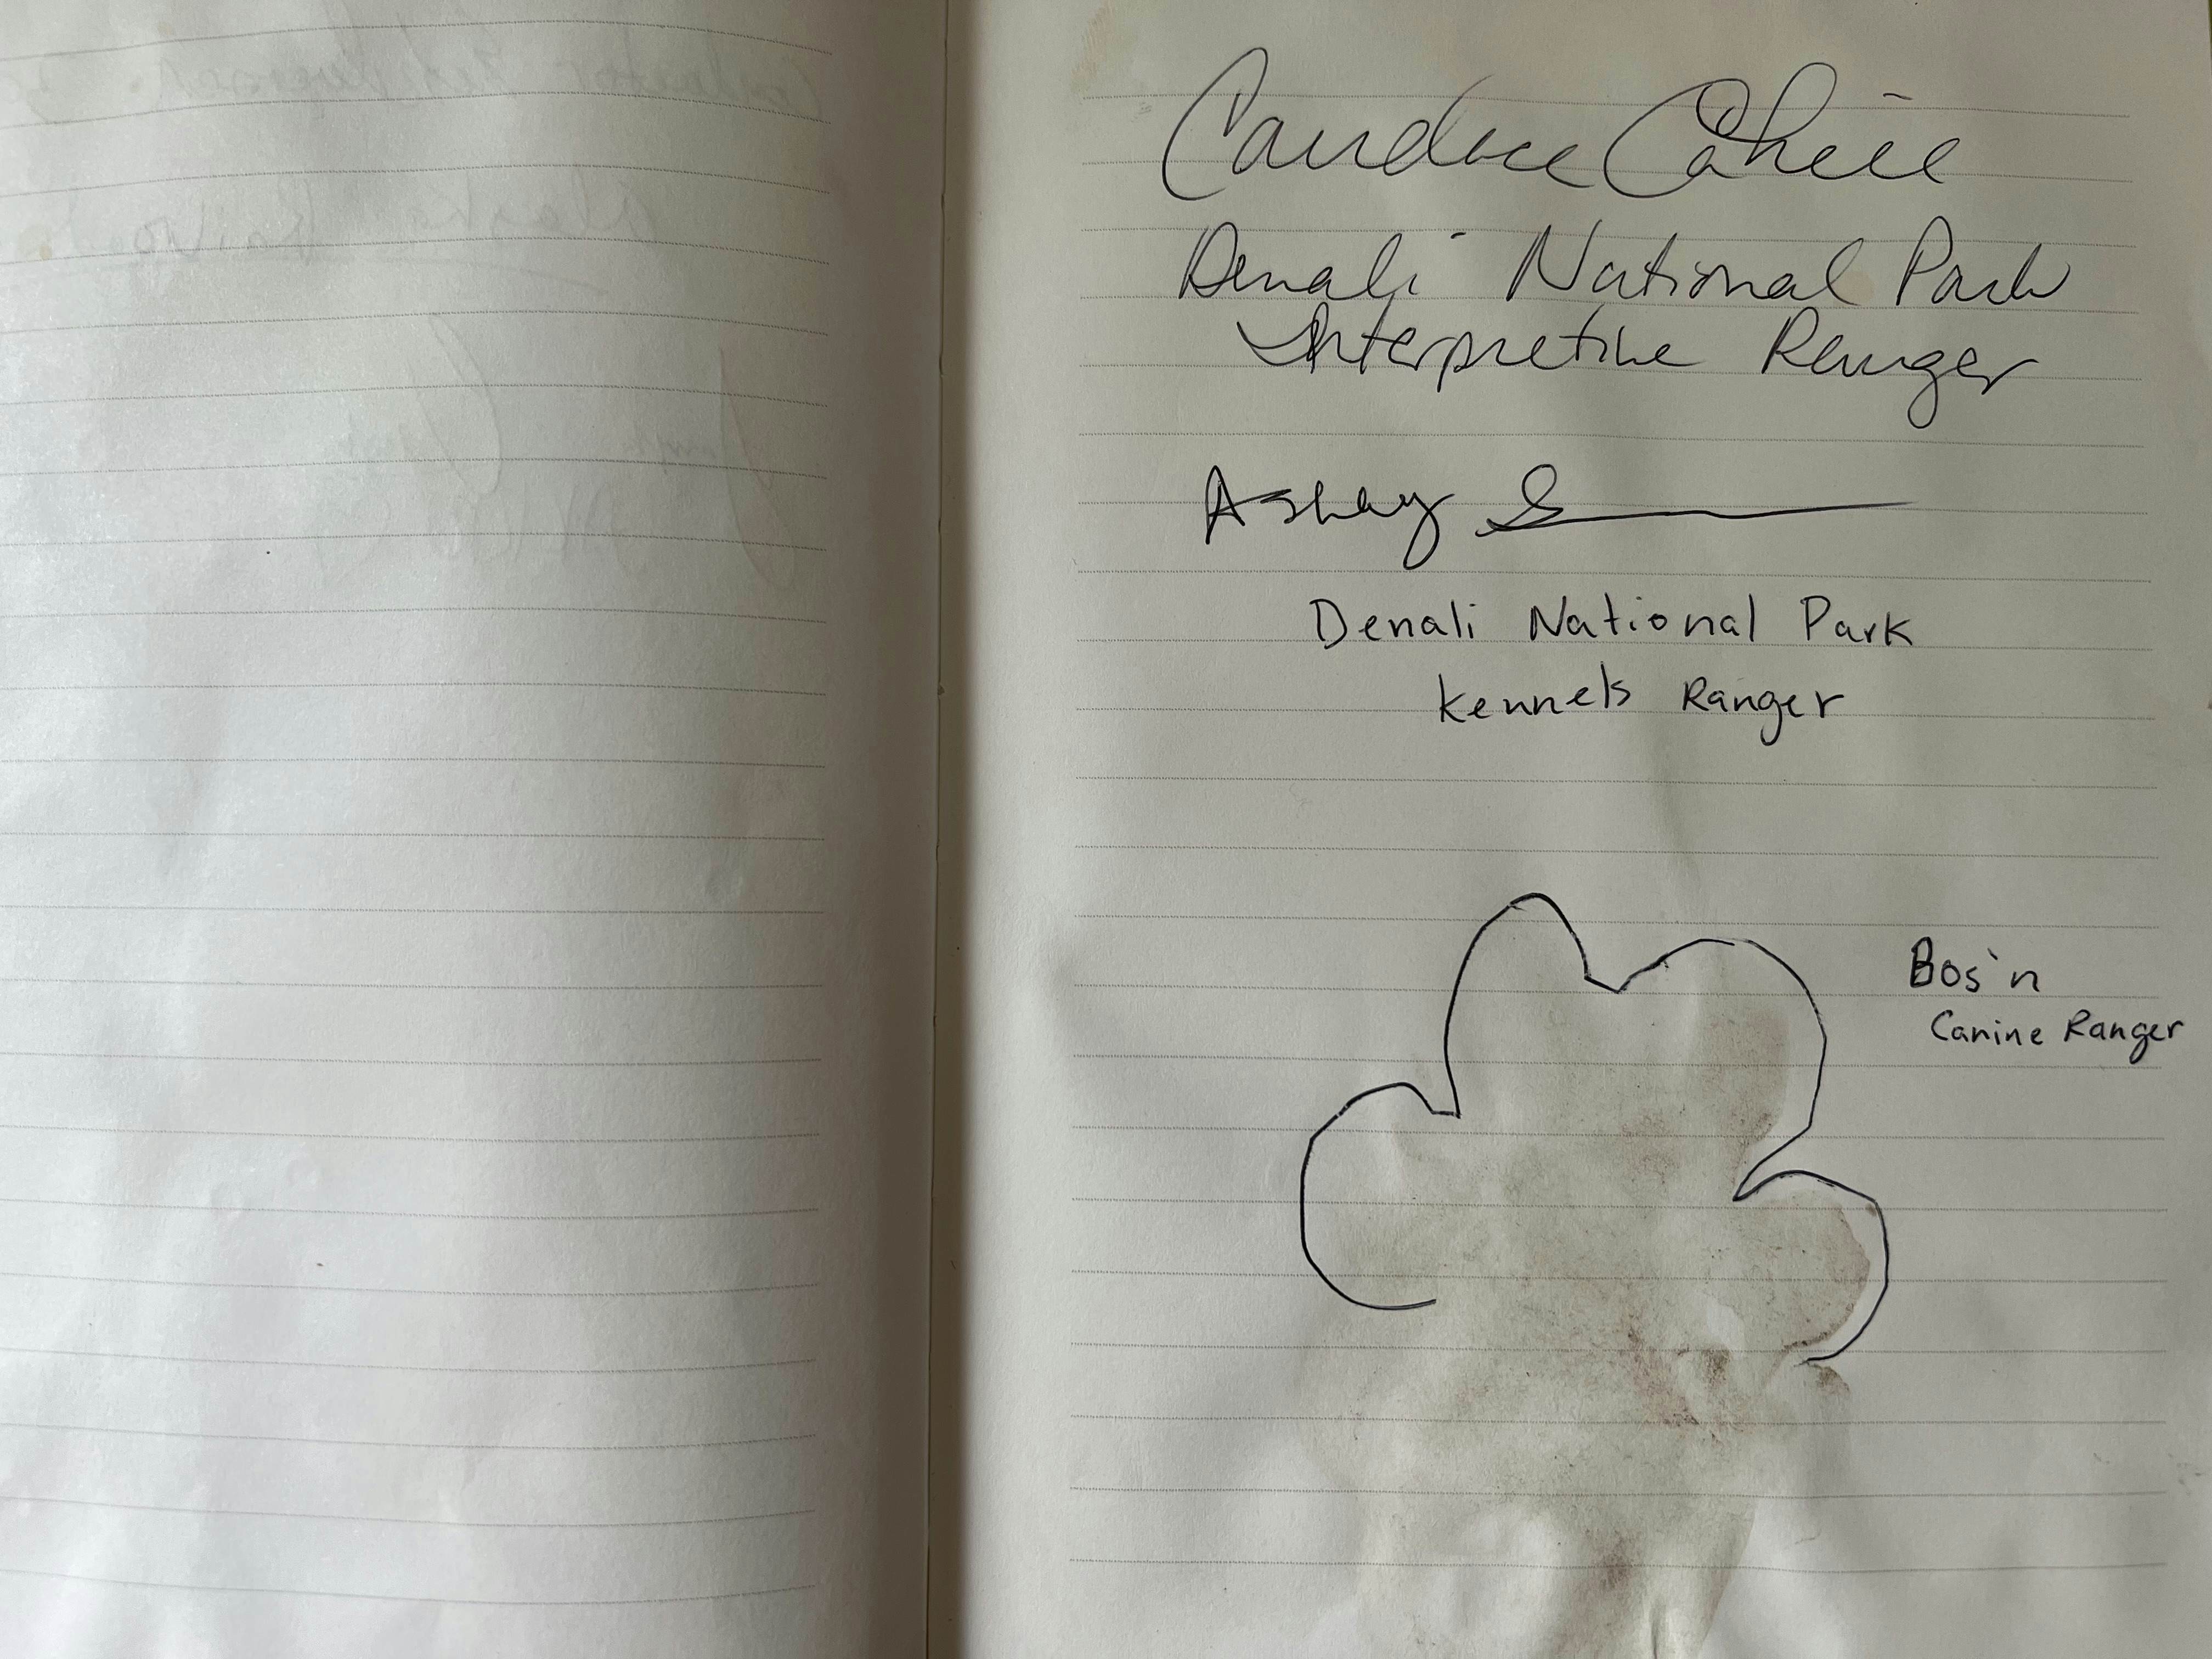 Candace Cahill
Denali National Park
Interpretive Ranger
Ashley
Denali National Park
Kennels Ranger
Bos'n
Canine Ranger